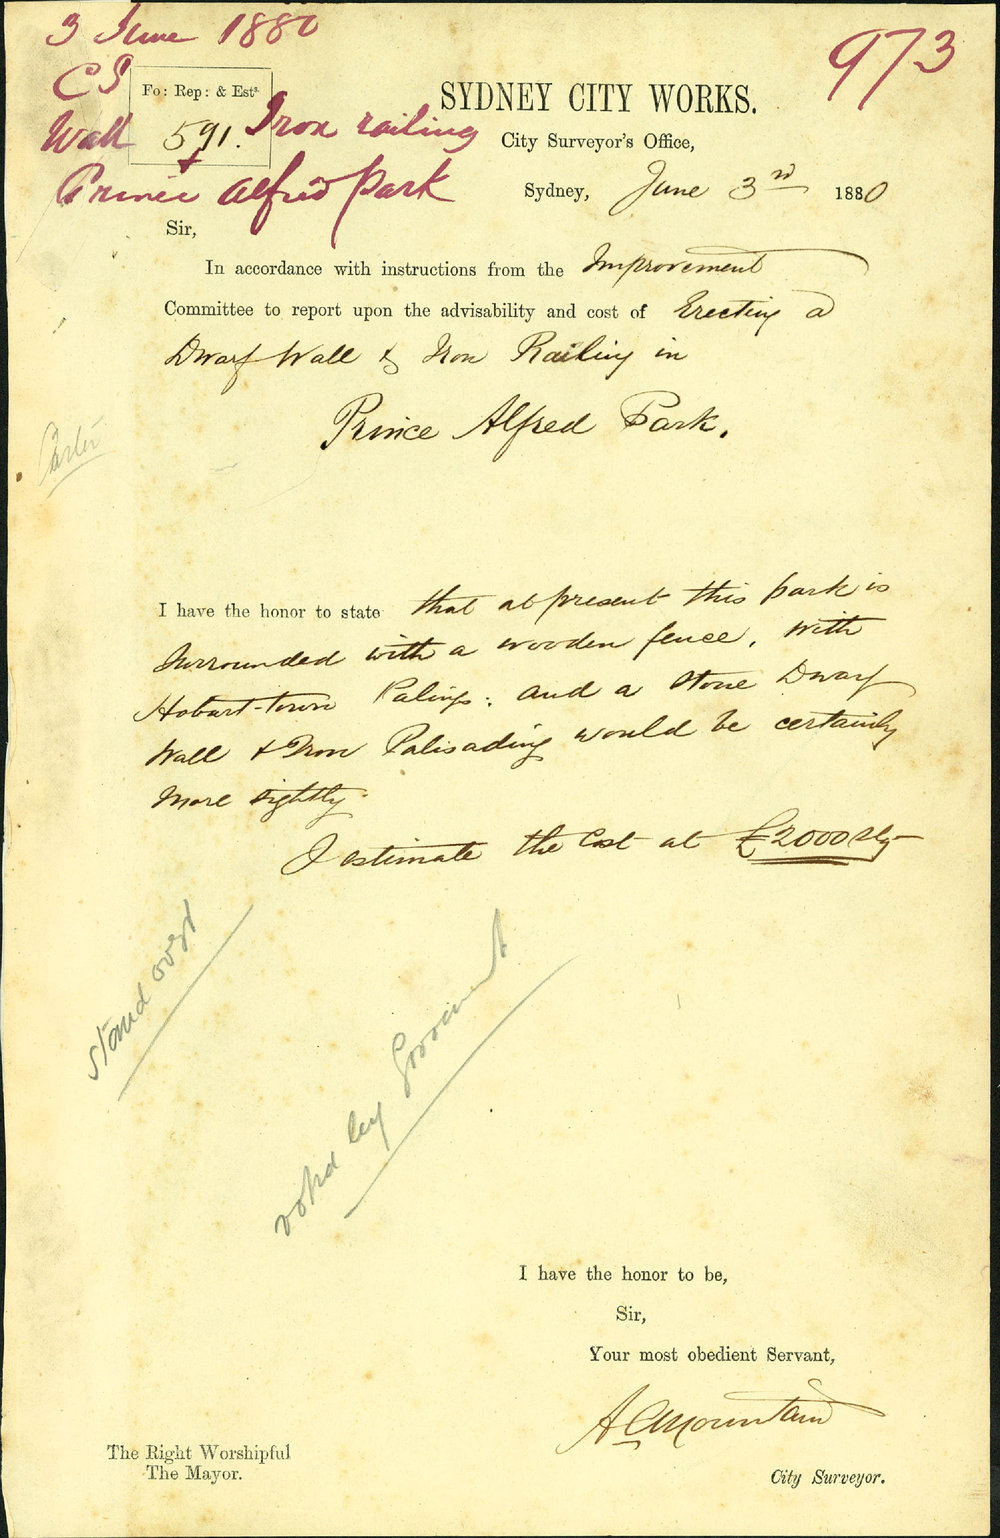 3 June 1880
973
CS
Fo: Rep: & Ests.
591.
Wall + Iron railing
Prince Alfred Park
SYDNEY CITY WORKS.
City Surveyor's Office,
Sydney, June 3rd 1880
Sir,
In accordance with instructions from the Improvement
Committee to report upon the advisability and cost of Erecting a
Dwarf Wall & Iron Railing in
Prince Alfred Park.
I have the honor to state that at present this park is
surrounded with a wooden fence, with
Hobart-town Palings: and a stone Dwarf
Wall & Iron Palisading would be certainly
more sightly.
I estimate the Cost at £2000
stand over
voted by Government
I have the honor to be,
Sir,
Your most obedient Servant,
A C Mountain
The Right Worshipful
The Mayor.
City Surveyor.